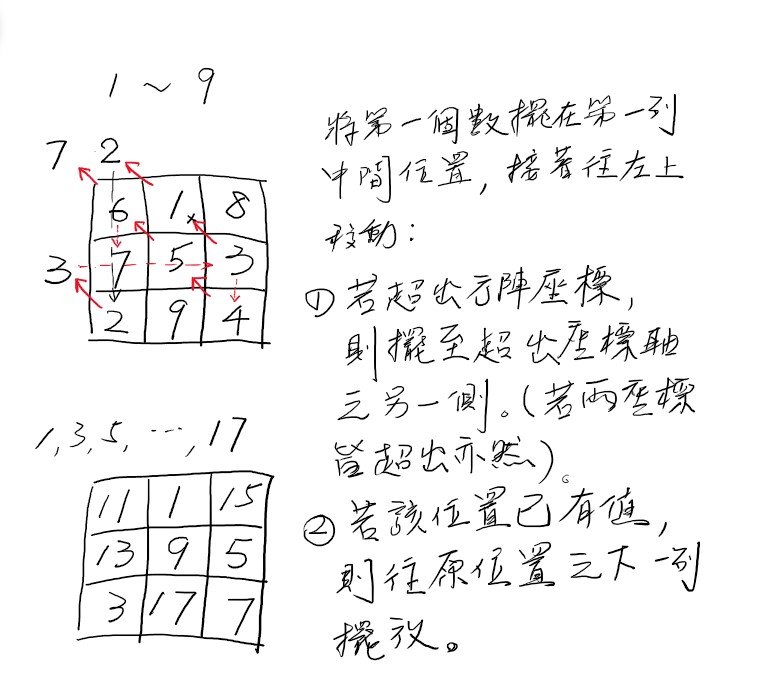 1 ~ 9
7 2
6 1 8
3 7 5 3
2 9 4
1, 3, 5, ..., 17
11 1 15
13 9 5
3 17 7
將第一個數擺在第一列
中間位置, 接著往左上
移動:
① 若超出方陣座標,
則擺至超出座標軸
之另一側。(若兩座標
皆超出亦然)。
② 若該位置已有值,
則往原位置之下一列
擺放。